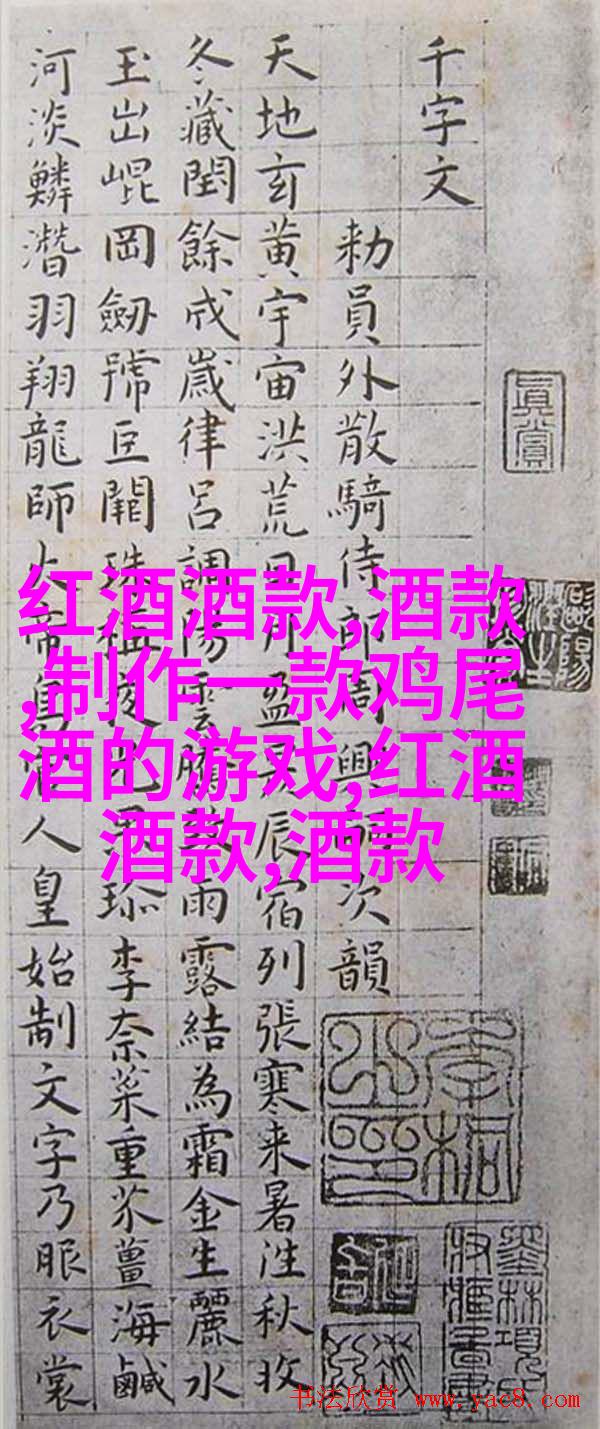 千字文
勑員外散騎侍郎周興嗣次韻
天地玄黃宇宙洪荒日月盈昃辰宿列張寒来暑往秋收
冬藏閏餘成歲律呂調陽雲騰致雨露結為霜金生麗水
玉出崐岡劒號巨闕珠稱夜光果珎李柰菜重芥薑海鹹
河淡鱗潛羽翔龍師火帝鳥官人皇始制文字乃服衣裳
真賞
红酒酒款,酒款
,制作一款鸡尾
酒的游戏,红酒
酒款,酒款
书法欣赏 www.yac8.com